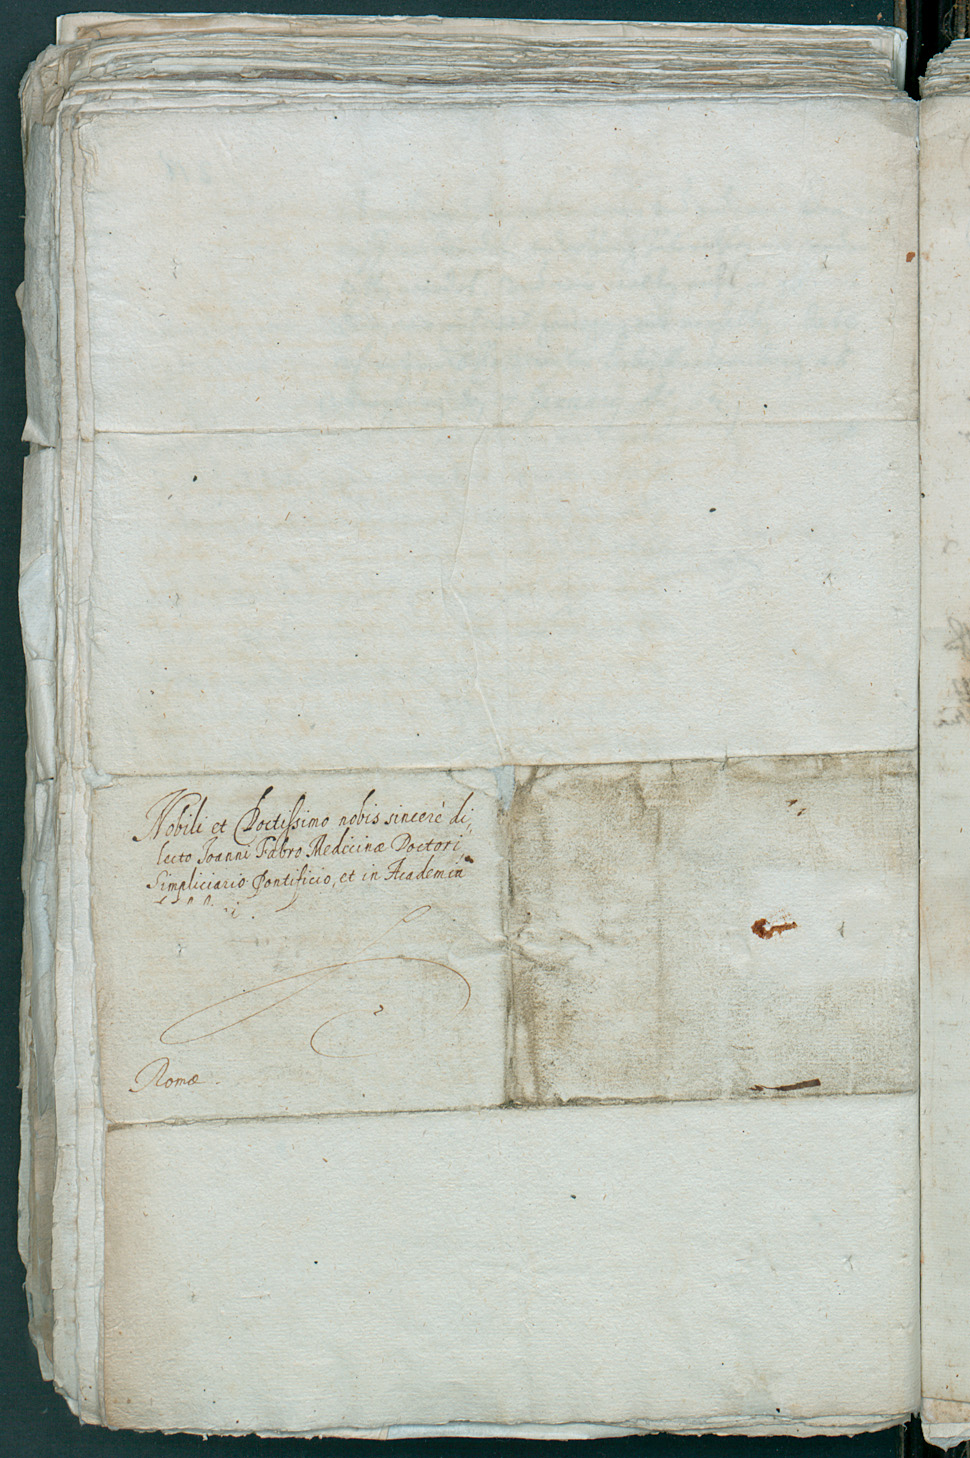 Nobili et Doctissimo nobis sincerè di„
lecto Joanni Fabro Medicinæ Doctori
Simpliciario Pontificio, et in Academia
Romæ